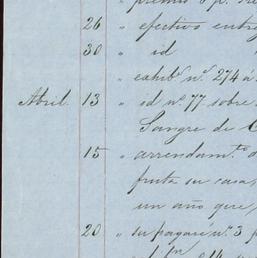 premio 6 p.
26 " efectivo entreg
30 " id
cambº nº 274 a
Abril 13 " id nº 77 sobre
Sangre de C
15 " arrendamto
fruta su casa,
un año que,
20 " su pagaré nº 3 p